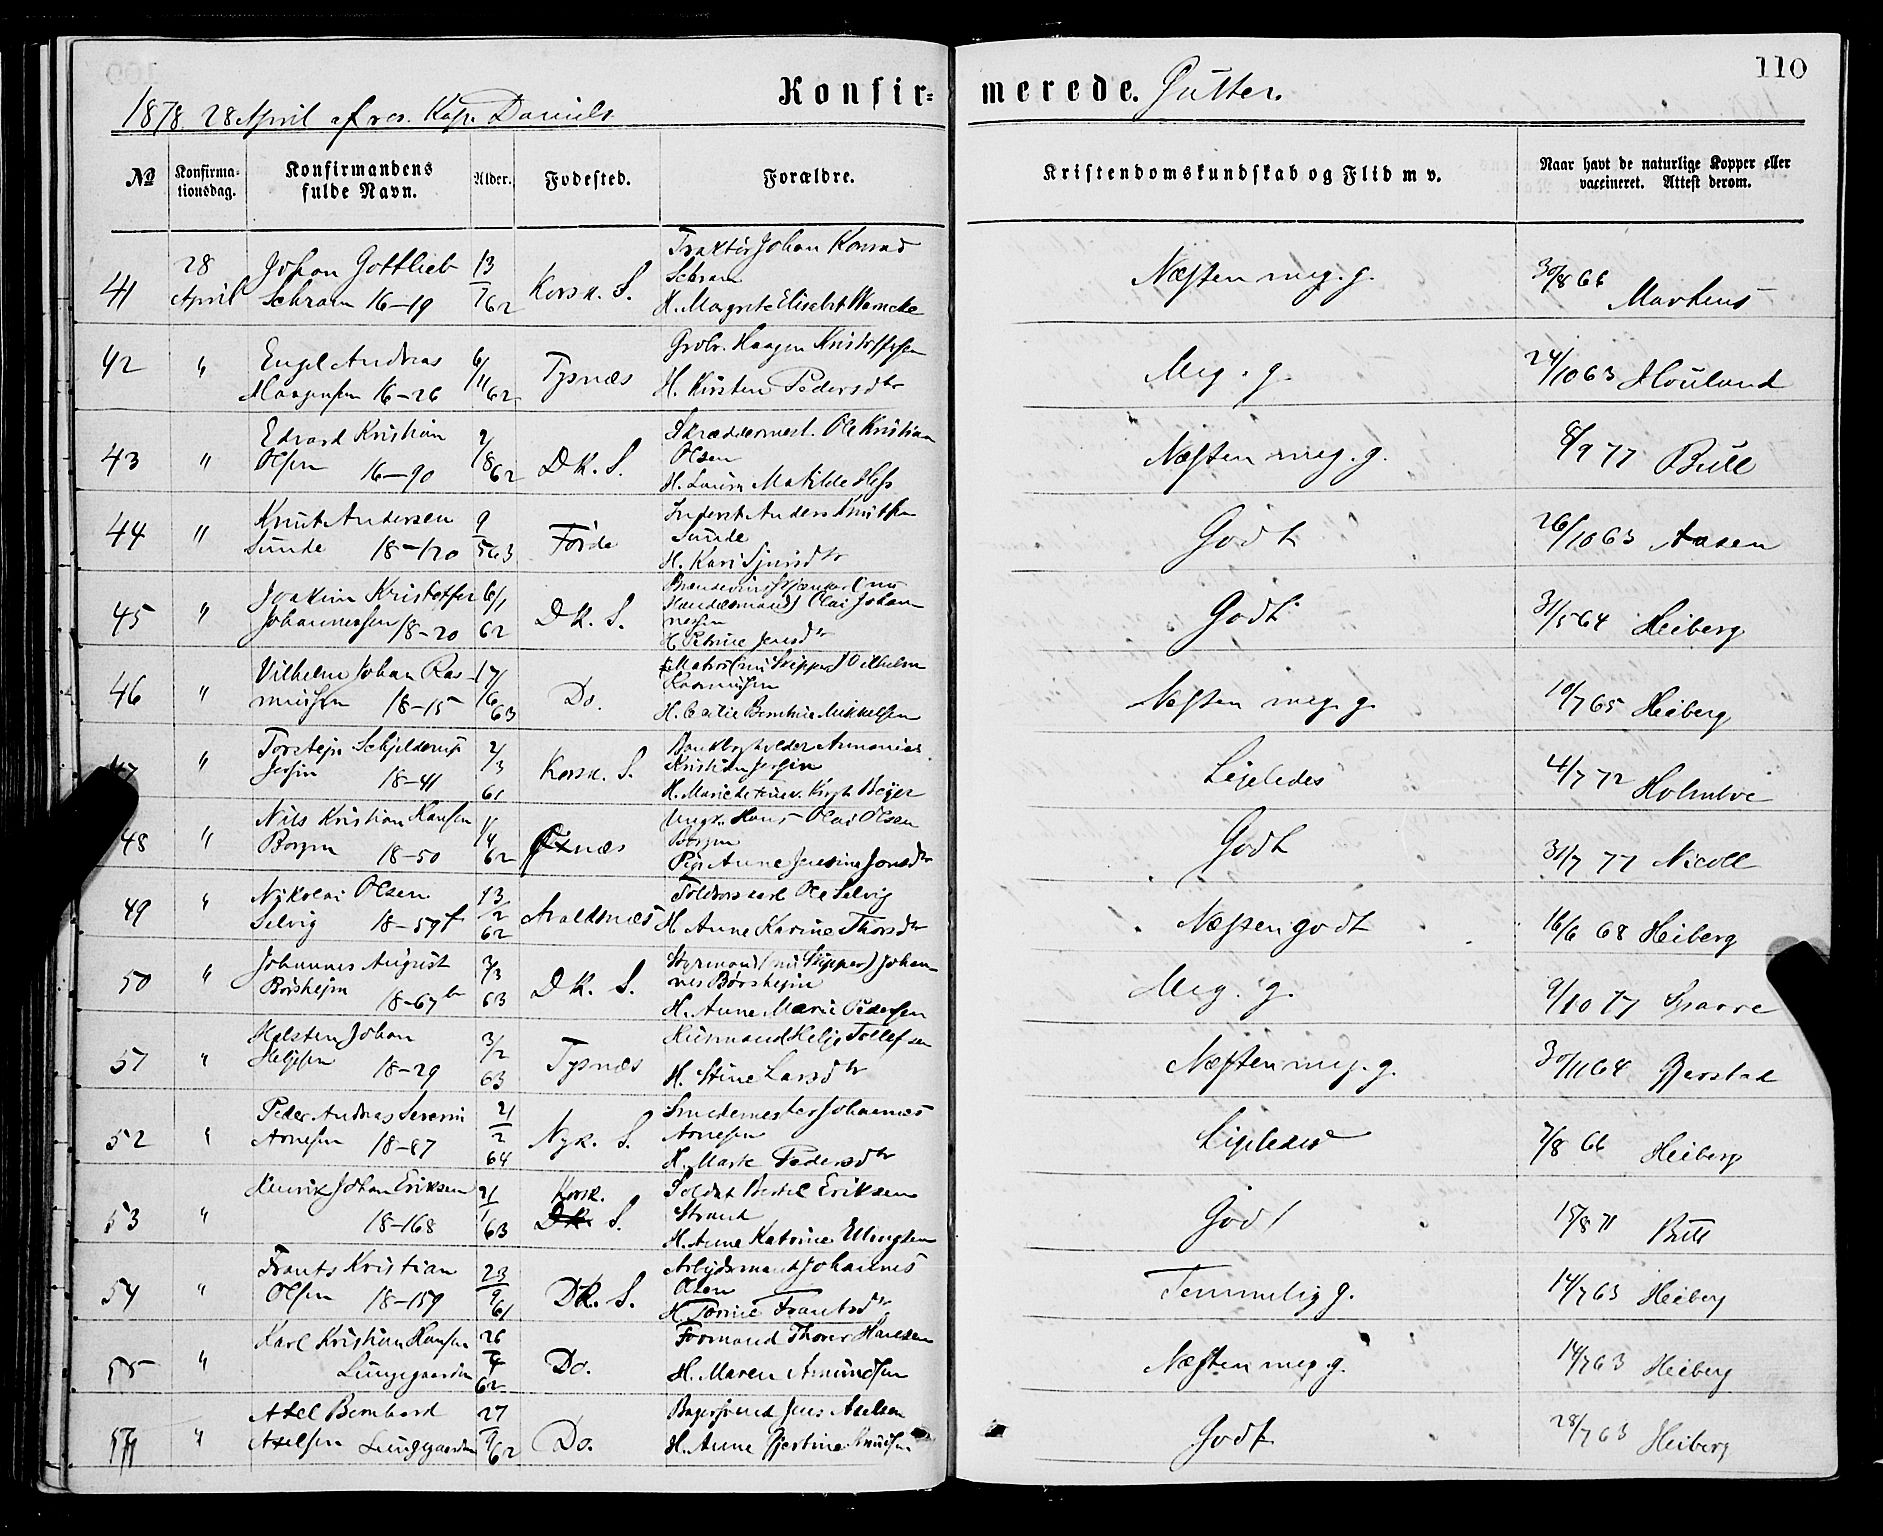 110
Konfir= merede. Gutter.
1878. 28 April af res. Kap. Daniels
No
Konfirma-
tionsdag.
Konfirmandens
fulde Navn.
Alder.
Fødested.
Forældre.
Kristendomskundskab og Flid m v.
Naar havt de naturlige Kopper eller
vaccineret. Attest derom.
41 28 April Johan Gottlieb Schram 16-19 13/7 62 Korsk. S. Traktør Johan Konrad Schram H. Margrete Elisabet Warncke Næsten meg. g. 30/8 66 Martens
42 " Engel Andreas Haagensen 16-26 6/11 62 Tysnæs Grbr. Haagen Kristoffersen H. Kirsten Pedersdtr Meg. g. 24/10 63 Houland
43 " Edvard Kristian Olsen 16-90 2/8 62 D K. S. Skræddermest. Ole Kristian Olsen H. Laura Matilde Hess Næsten meg. g. 8/9 77 Bull
44 " Knut Andersen Sunde 18-120 9/5 63 Førde Inderst Anders Knutsen Sunde H. Kari Sjursdtr Godt 26/10 63 Aasen
45 " Joakim Kristoffer Johannessen 18-20 6/1 62 D K. S. Olai Johannessen H. Petrine Jensdtr Godt 31/5 64 Heiberg
46 " Vilhelm Johan Rasmussen 18-15 17/6 63 Do. Matros (nu Skipper) Vilhelm Rasmussen H. Mikkelsen Næsten meg. g. 10/7 65 Heiberg
" Torstejn Schjelderup Jersin 18-41 2/3 61 Korsk. S. Kristian Jersin H. Beyer Ligeledes 4/7 72 Holmboe
48 " Nils Kristian Hansen Borgen 18-50 1/4 62 Ungk. Hans Olai Olsen Borgen Pige Anne Jonsdtr Godt 31/7 77 Nicoll
49 " Nikolai Olsen Selvig 18-59f 13/2 62 Avaldsnæs Ole Selvig H. Anne Karine Thorsdtr Næsten godt 16/6 68 Heiberg
50 " Johannes August Børshejm 18-67b 3/3 63 D K. S. Styrmand (nu Skipper) Johannes Børshejm H. Anne Marie Pedersen Meg. g. 9/10 77 Sparre
51 " Halsten Johan Heljesen 18-29 3/2 63 Tysnæs Husmand Helje Tollefsen H. Stine Larsdtr Næsten meg. g. 30/11 64 Gjerstad
52 " Peder Andreas Severin Arnesen 18-87 21/2 64 Nyk. S. Smedemester Johannes Arnesen H. Marte Pedersdtr Ligeledes 7/8 66 Heiberg
53 " Henrik Johan Eriksen 18-168 21/1 63 Korsk. S. Soldat Bertel Eriksen Strand H. Anne Katrine Ellingsen Godt 15/8 71 Bull
54 " Frants Kristian Olsen 18-159 23/9 61 DK. S. Arbejdsmand Johannes Olsen H. Frantsdtr Temmelig g. 14/7 63 Heiberg
55 " Karl Kristian Hansen Lungegaarden 26/4 62 Do. Formand Thorer Hansen H. Maren Amundsen Næsten meg. g. 14/7 63 Heiberg
" Axel Bernhard Axelsen Lungegaarden 27/9 62 Do. Bagersvend Jens Axelsen H. Anne Gjertine Knudsen Godt 28/7 63 Heiberg